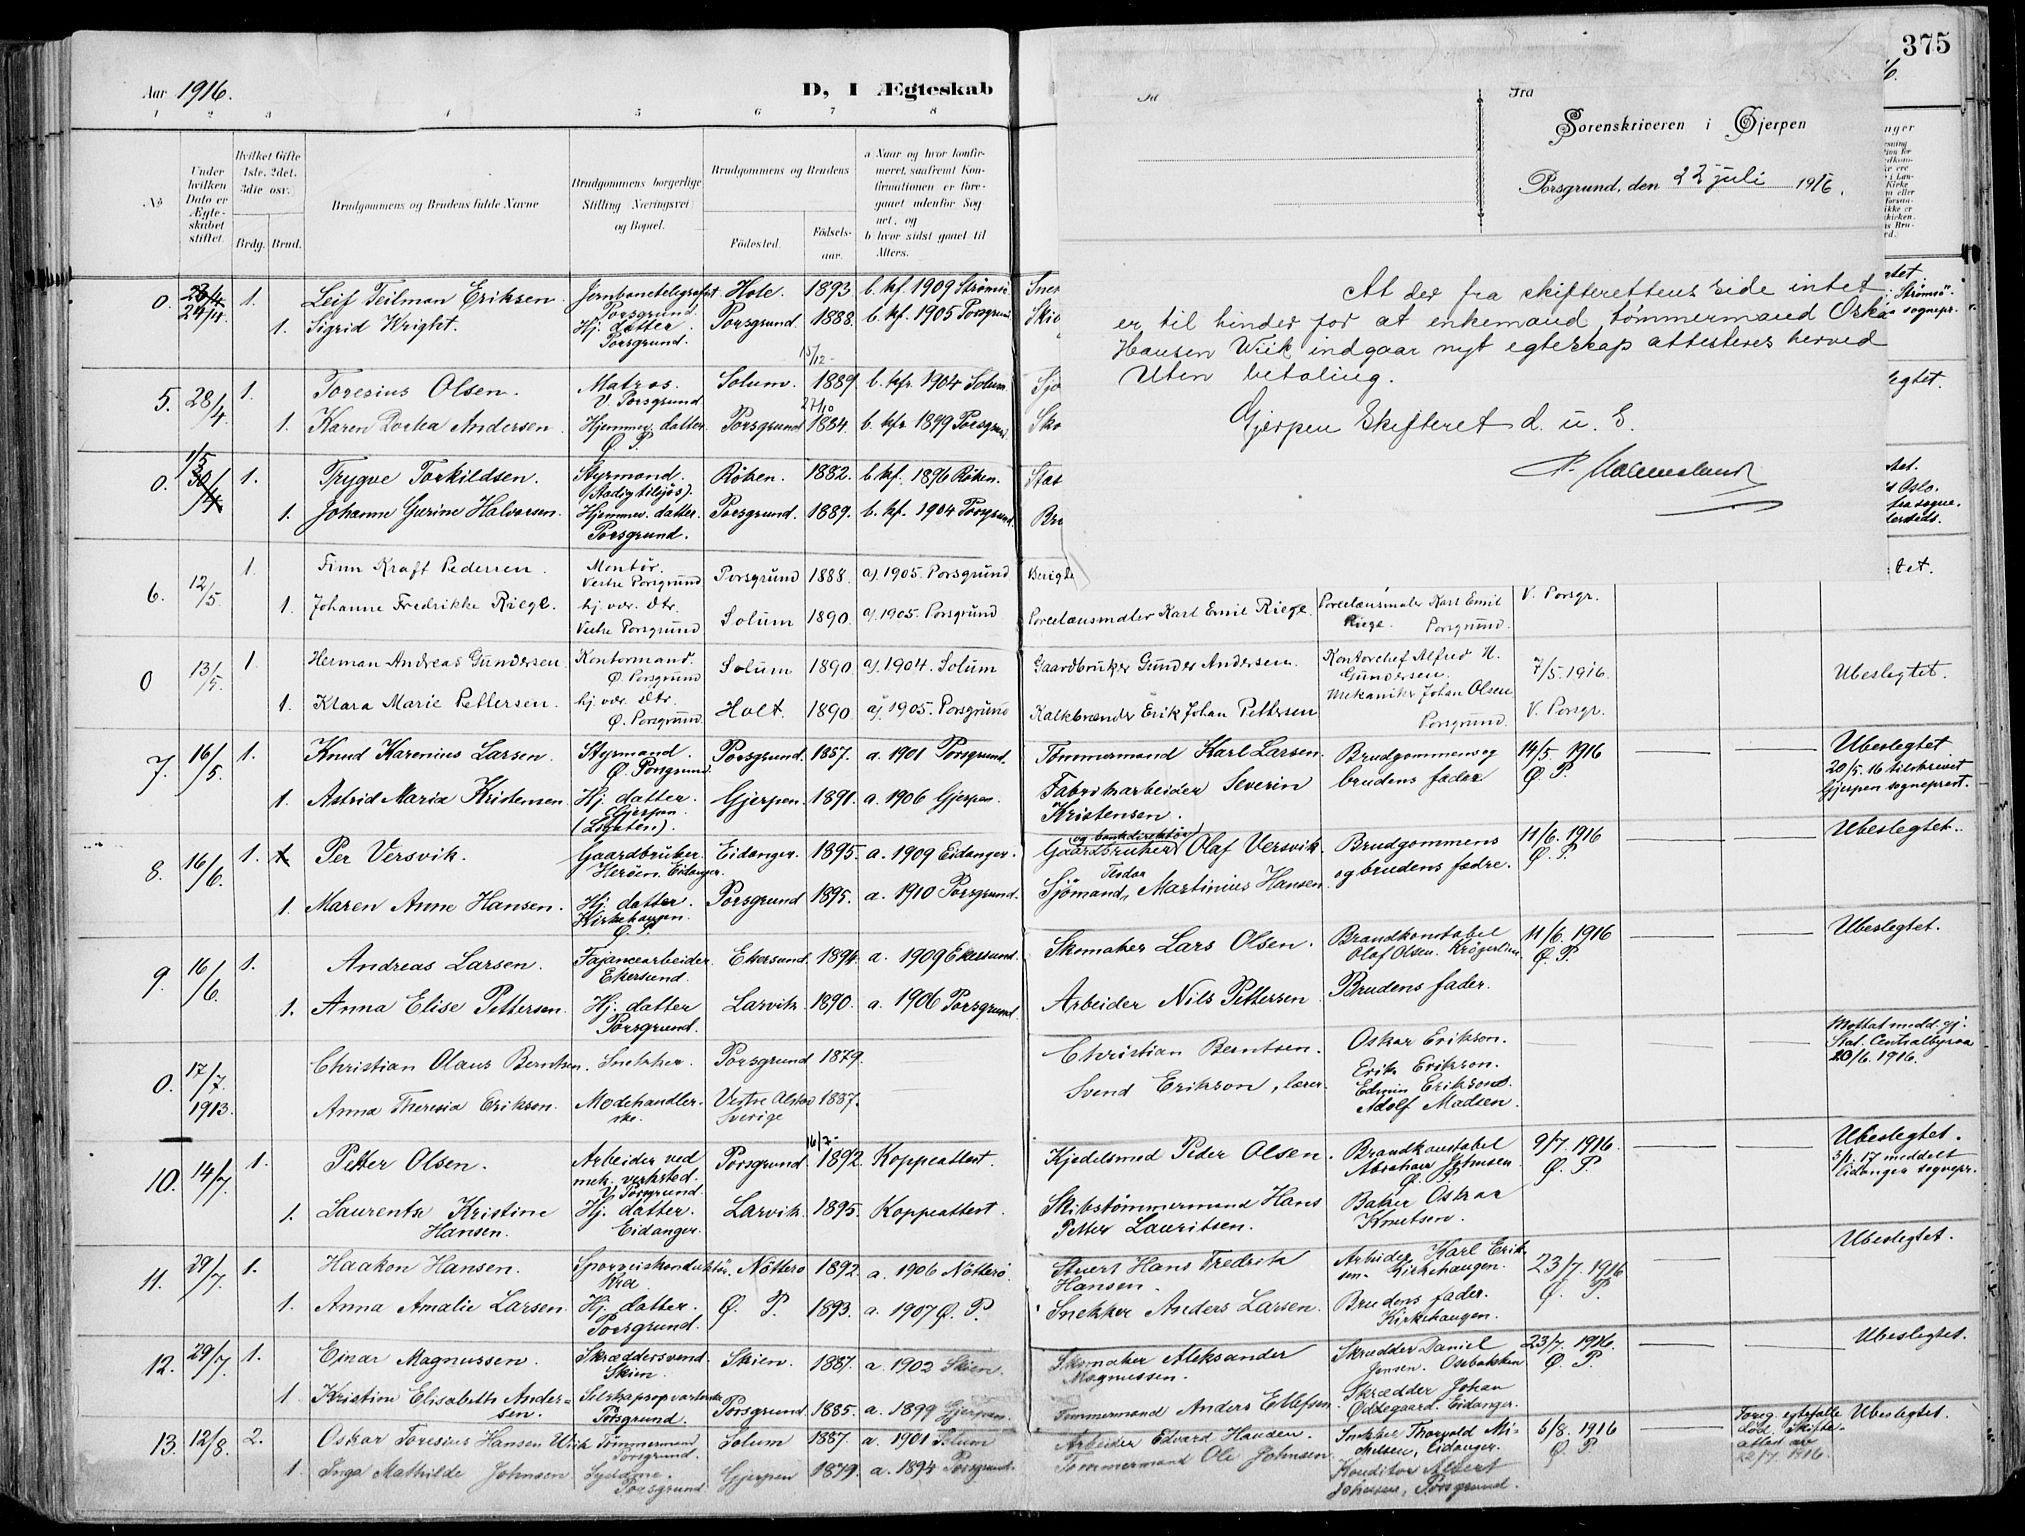 Aar 1916.
D, I Ægteskab
375
1 2 3 4 5 6 7 8
№
Under hvilken Dato er Ægteskabet stiftet.
Hvilket Gifte 1ste, 2det, 3die osv.
Brdg. Brud.
Brudgommens og Brudens fulde Navne
Brudgommens borgerlige Stilling Næringsvei og Bopæl.
Brudgommens og Brudens
Fødested.
Fødselsaar.
a Naar og hvor konfirmeret, saafremt Konfirmationen er foregaaet udenfor Sognet, og
b hvor sidst gaaet til Alters.
Fra
Sorenskriveren i Gjerpen
Porsgrund, den 22 juli 1916.
At der fra skifterettens side intet
er til hinder for at enkemand, tømmermand Oska
Hansen Wiik indgaar nyt egteskap attesteres herved
Uten betaling.
Gjerpen Skifteret d. u. S.
0. 24/4. 1. Leif Teilman Eriksen. Jernbanetelegrafist Porsgrund. Hole. 1893 b. kf. 1909 Strømsø
1. Sigrid Wright. Hj. datter Porsgrund. Porsgrund. 1888. b. kf. 1905 Porsgrund
5. 28/4 1. Toresius Olsen. Matros. V. Porsgrund Solum. 15/12- 1889 b. kfr. 1904 Solum
1. Karen Dortea Andersen Hjemmev. datter. Ø. P. Porsgrund 27/10 1884. b. kfr. 1899 Porsgrund.
0. 1/5 1. Trygve Torkildsen. Styrmand. (Stadig tilsjøs). Røken. 1882. b. kf. 1896 Røken.
1. Johanne Gurine Halvorsen. Hjemmev. datter. Porsgrund. Porsgrund. 1889. b. kf. 1904 Porsgrund.
6. 12/5. 1. Finn Kraft Pedersen. Montør. Vestre Porsgrund Porsgrund 1888. a). 1905. Porsgrund
1. Johanne Fredrikke Riege. hj. vær. Dtr. Vestre Porsgrund Solum 1890. a). 1905. Porsgrund Porcelænsmaler Karl Emil Riege. Porcelænsmaler Karl Emil Riege. Porsgrund. V. Porsgr.
0 13/5. 1. Herman Andreas Gundersen Kontormand. Ø. Porsgrund Solum 1890 a). 1904. Solum Gaardbruker Gunder Andersen. Kontorchef Alfred H. Gundersen. 7/5. 1916. Ubeslegtet.
1. Klara Marie Pettersen. hj. vær. Dtr. Ø. Porsgrund. Holt. 1890. a). 1905. Porsgrund Kalkbrænder Erik Johan Pettersen Mekaniker Johan Olsen Porsgrund. V. Porsgr.
7. 16/5. 1. Knud Karenius Larsen. Styrmand. Ø. Porsgrund. Porsgrund. 1887. a. 1901 Porsgrund. Tømmermand Karl Larsen. Brudgommens og brudens fader 14/5. 1916 Ø. P. Ubeslegtet. 20/5. 16 tilskrevet Gjerpen sogneprest.
1. Astrid Maria Kristensen Hj. datter. Gjerpen Gjerpen. 1891. a. 1906 Gjerpen. Fabrikarbeider Severin Kristensen.
8. 16/6. 1. Per Versvik. Gaardbruker. Herøen. Eidanger. Eidanger. 1895. a. 1909 Eidanger. Gaardbruker og bankdirektør Olaf Versvik Brudgommens og brudens fædre. 11/6. 1916 Ø. P. Ubeslegtet.
1. Maren Anne Hansen. Hj. datter. Kirkehaugen. Ø. P. Porsgrund 1895. a. 1910 Porsgrund. Sjømand Martinius Hansen.
9. 16/6. 1. Andreas Larsen. Fajancearbeider. Ekersund. Ekersund 1894. a. 1909 Ekersund. Skomaker Lars Olsen. Brandkonstabel Olaf Olsen. 11/6. 1916 Ø. P. Ubeslegtet.
1. Anna Elise Pettersen Hj. datter Porsgrund. Larvik 1890. a. 1906 Porsgrund Arbeider Nils Pettersen Brudens fader.
0. 17/7 1913. Christian Olaus Berntsen. Snekker. Porsgrund 1879. Christian Berntsen. Oskar Erikson. Erik Erikson. Mottat medd. gj. Stat. Centralbyraa 20/6. 1916.
Anna Theresia Erikson. Modehandlerske. Vestre Sverige 1887. Svend Erikson, lærer. Edwin Erikson. Adolf Madsen.
10. 14/7. 1. Petter Olsen. Arbeider ved mek. verksted. V. Porsgrund. Porsgrund 16/7- 1892. Koppeattest. Kjedelsmed Peder Olsen. Brandkonstabel Abraham Johnsen Ø. P. 9/7. 1916 Ø. P Ubeslegtet. 3/1. 17 meddelt Eidanger sognepr.
1. Laurentse Kristine Hansen. Hj. datter. Eidanger. Larvik. 1895. Koppeattest. Skibstømmermand Hans Petter Lauritsen. Baker Oskar Knutsen.
11. 29/7. 1. Haakon Hansen. Sporveiskonduktør Kra Nøtterø 1892. a. 1906 Nøtterø. Stuert Hans Fredrik Hansen. Arbeider Karl Eriksen. Kirkehaugen. 23/7. 1916 Ø. P. Ubeslegtet.
1. Anna Amalie Larsen. Hj. datter. Porsgrund. Ø. P. 1893. a. 1907 Ø. P. Snekker Anders Larsen. Brudens fader. Kirkehaugen.
12. 29/7. 1. Einar Magnussen. Skræddersvend. Skien. Skien. 1887. a. 1902 Skien. Skomaker Aleksander Magnussen. Skrædder Daniel Jensen. Osebakken 23/7. 1916. Ø. P Ubeslegtet.
1. Kristine Elisabeth Andersen. Selskapsopvarterske Porsgrund. Porsgrund. 1885. a. 1899 Gjerpen. Tømmermand Anders Ellefsen. Skrædder Johan Oddegaard. Eidanger.
13. 12/8. 2. Oskar Toresius Hansen Wiik Tømmermand Porsgrund. Solum 1887. a. 1901 Solum Arbeider Edvard Hansen. Snekker Thorvald Mikelsen, Eidanger. 6/8. 1916 Ø. P Foreg. egtefælle død. Skifteattest av 22/7. 1916. Ubeslegtet.
1. Inga Mathilde Johnsen Sydame. Porsgrund Gjerpen 1879. a. 1894 Porsgrund. Tømmermand Ole Johnsen. Konditor Albert Johnsen, Porsgrund.